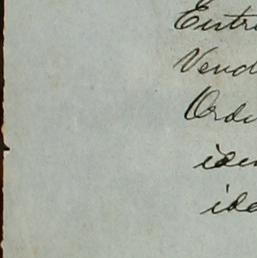 Entr
Vend
Orde
iden
ide